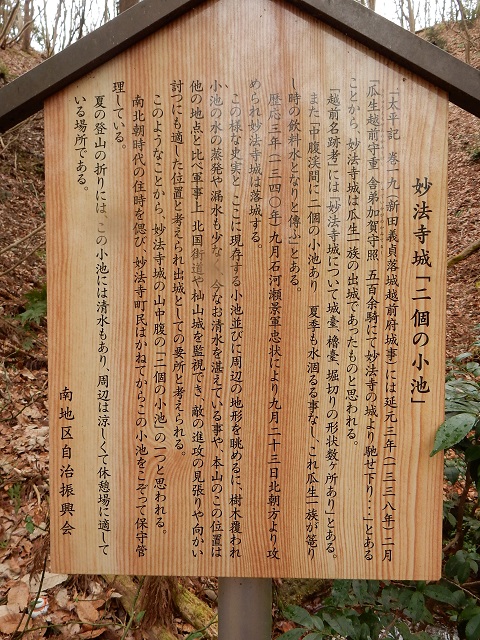 妙法寺城「二個の小池」
「太平記 巻一九(新田義貞落城越前府城事)には延元三年(一三三八年)二月
「瓜生越前守重 舎弟加賀守照 五百余騎にて妙法寺の城より馳せ下り・・・とある
ことから、妙法寺城は瓜生一族の出城であったものと思われる。
「越前名跡考」には「妙法寺城について城臺、櫓臺、堀切りの形状数ヶ所あり」とある。
また「中腹渓間に二個の小池あり 夏季も水涸るる事なし、これ瓜生一族が篭り
し時の飲料水となりと傳ふ」とある。
歴応三年(一三四〇年)九月石河瀬景軍忠状により九月二十三日北朝方より攻
められ妙法寺城は落城する。
この様な史実と、ここに現存する小池並びに周辺の地形を眺めるに、樹木覆われ
小池の水の蒸発や漏水も少な 今なお清水を湛えている事や、本山のこの位置は
他の地点と比べ軍事上 北国街道や杣山城を監視でき、敵の進攻の見張りや向かい
討つにも適した位置と考えられ出城としての要所と考えられる。
このようなことから、妙法寺城の山中腹の「二個の小池」の一つと思われる。
南北朝時代の往時を偲び、妙法寺町民はかねてからこの小池をこぞって保守管
理している。
夏の登山の折りには、この小池には清水もあり、周辺は涼しくて休憩場に適して
いる場所である。
南地区自治振興会